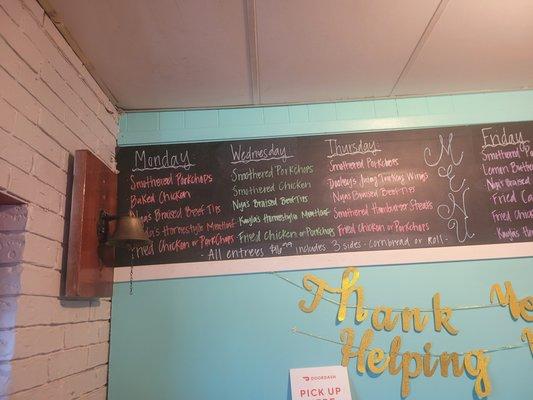 Monday
Smothered PorkChops
Baked Chicken
Nya's Braised Beef Tips
Homestyle Meatloaf
Fried Chicken or PorkChops
Wednesday
Smothered PorkChops
Smothered Chicken
Nya's Braised Beef Tips
Kayla's Homestyle Meatloaf
Fried Chicken or PorkChops
Thursday
Smothered PorkChops
Jerk Turkey Wings
Nya's Braised Beef Tips
Smothered Hamburger Steaks
Fried Chicken or PorkChops
MEN
Friday
Smothered
Lemon
Nya's Braised
Fried
Fried Chicken
Kayla's Home
- All entrees $16.99 includes 3 sides - Cornbread or Roll -
Thank
Helping
DOORDASH
PICK UP